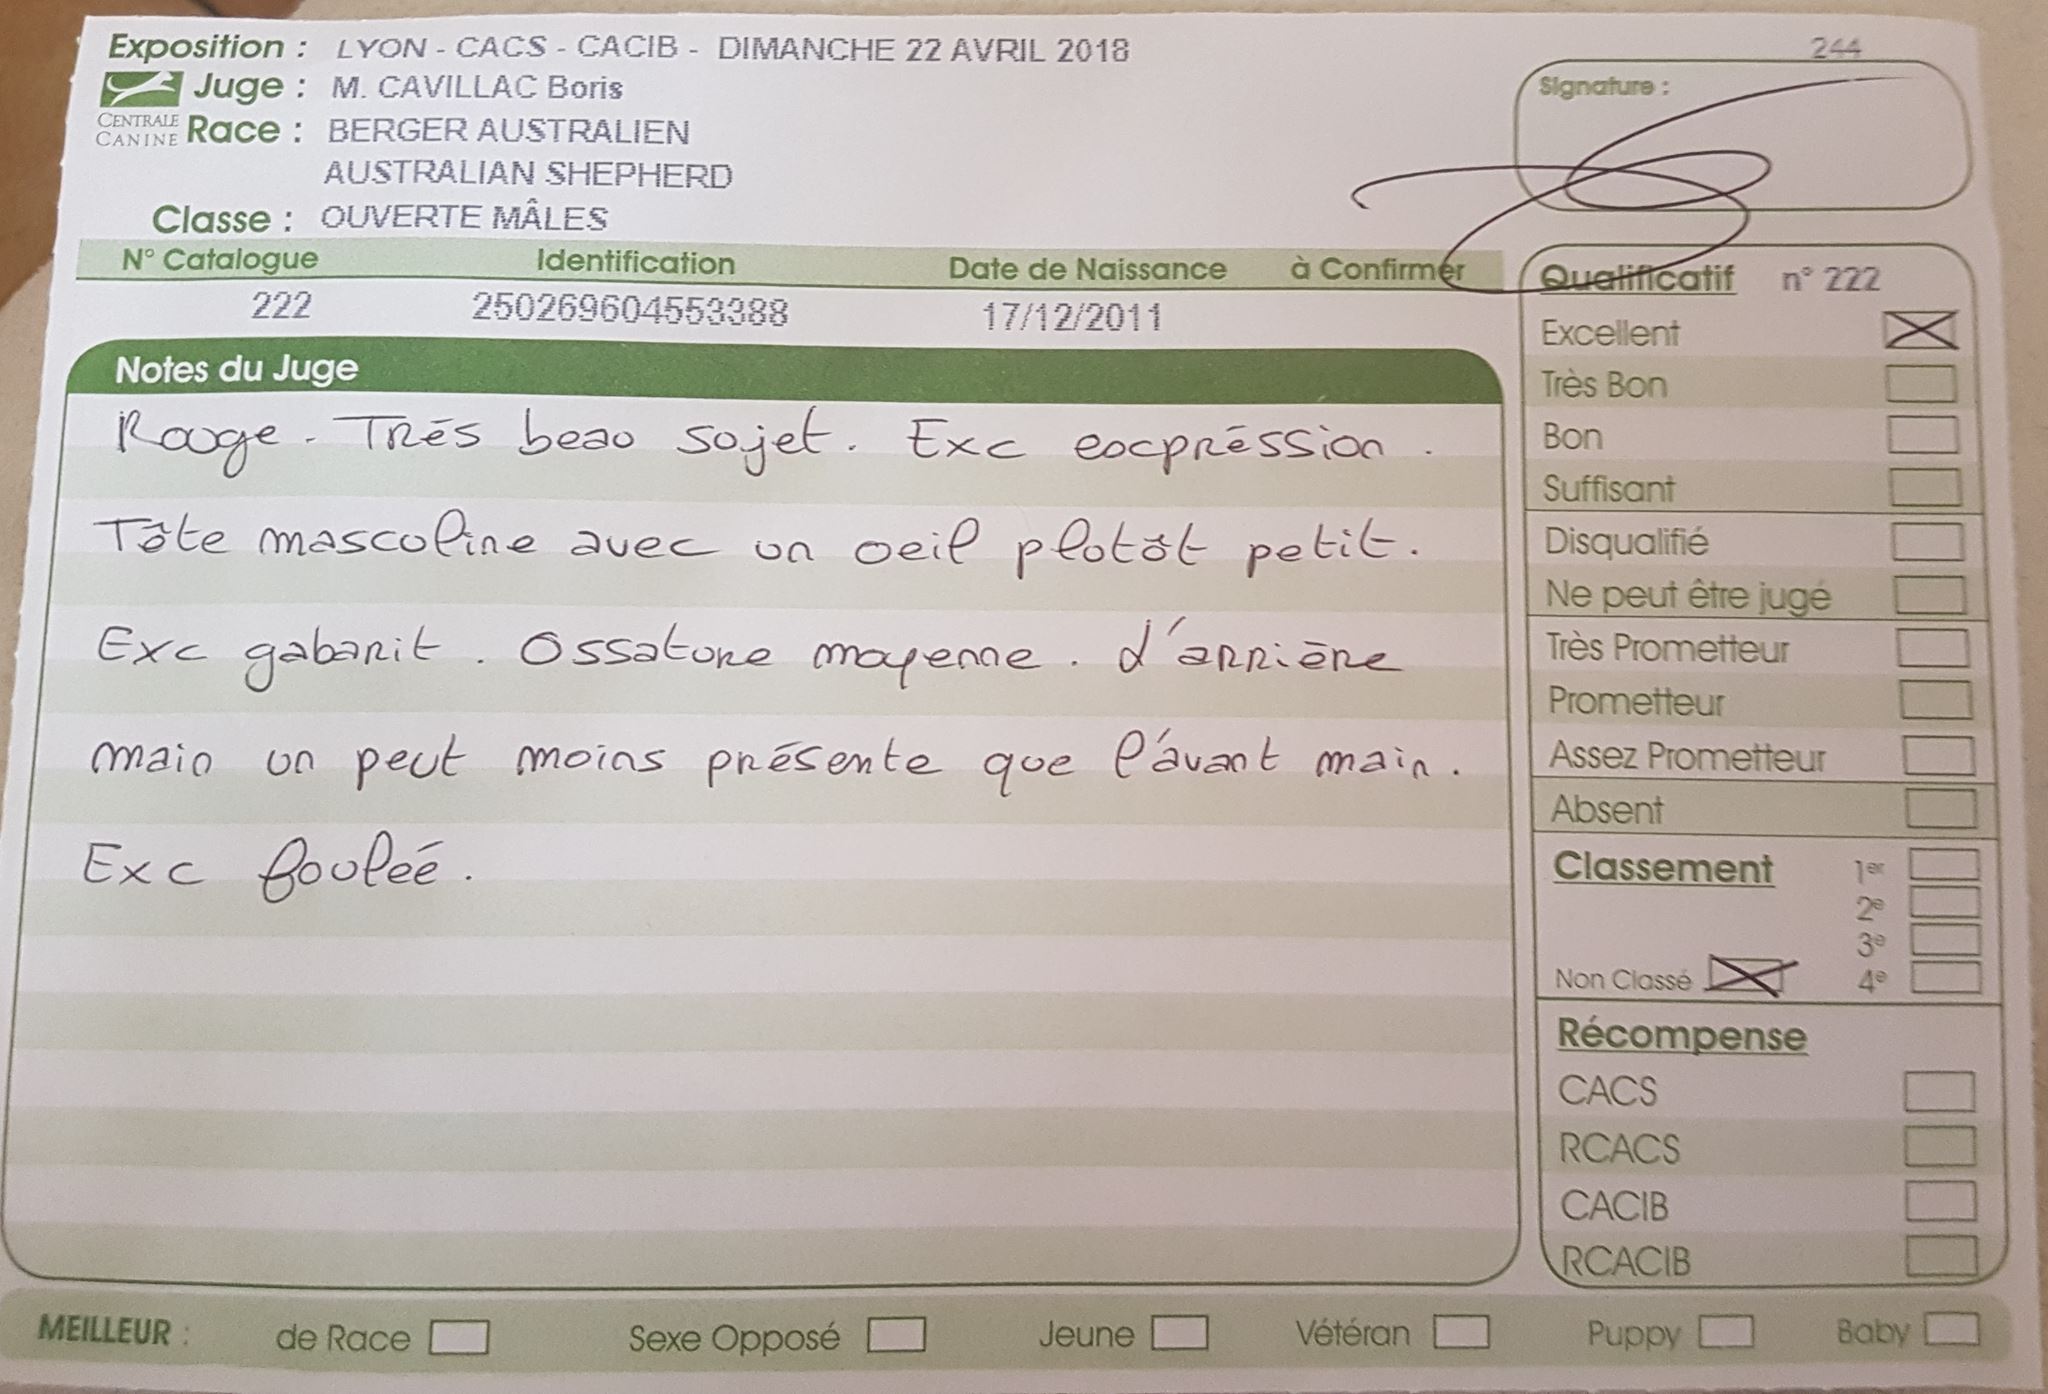 244
Exposition : LYON - CACS - CACIB - DIMANCHE 22 AVRIL 2018
Juge : M. CAVILLAC Boris
CENTRALE CANINE
Race : BERGER AUSTRALIEN
AUSTRALIAN SHEPHERD
Classe : OUVERTE MÂLES
Signature :
N° Catalogue Identification Date de Naissance à Confirmer
222 250269604553388 17/12/2011
Notes du Juge
Rouge. Trés beau sujet. Exc expréssion.
Tête masculine avec un oeil plutôt petit.
Exc gabarit. Ossature moyenne. d'arrière
main un peut moins présente que l'avant main.
Exc fouleé.
Qualificatif n° 222
Excellent
Très Bon
Bon
Suffisant
Disqualifié
Ne peut être jugé
Très Prometteur
Prometteur
Assez Prometteur
Absent
Classement 1er
2e
3e
Non Classé 4e
Récompense
CACS
RCACS
CACIB
RCACIB
MEILLEUR : de Race Sexe Opposé Jeune Vétéran Puppy Baby